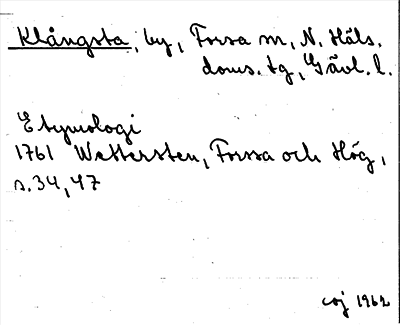 Klångsta, by, Forsa sn, N. Häls.
doms. tg, Gävl. l.
Etymologi
1761 Wettersten, Forssa och Hög,
s. 34, 47
1962